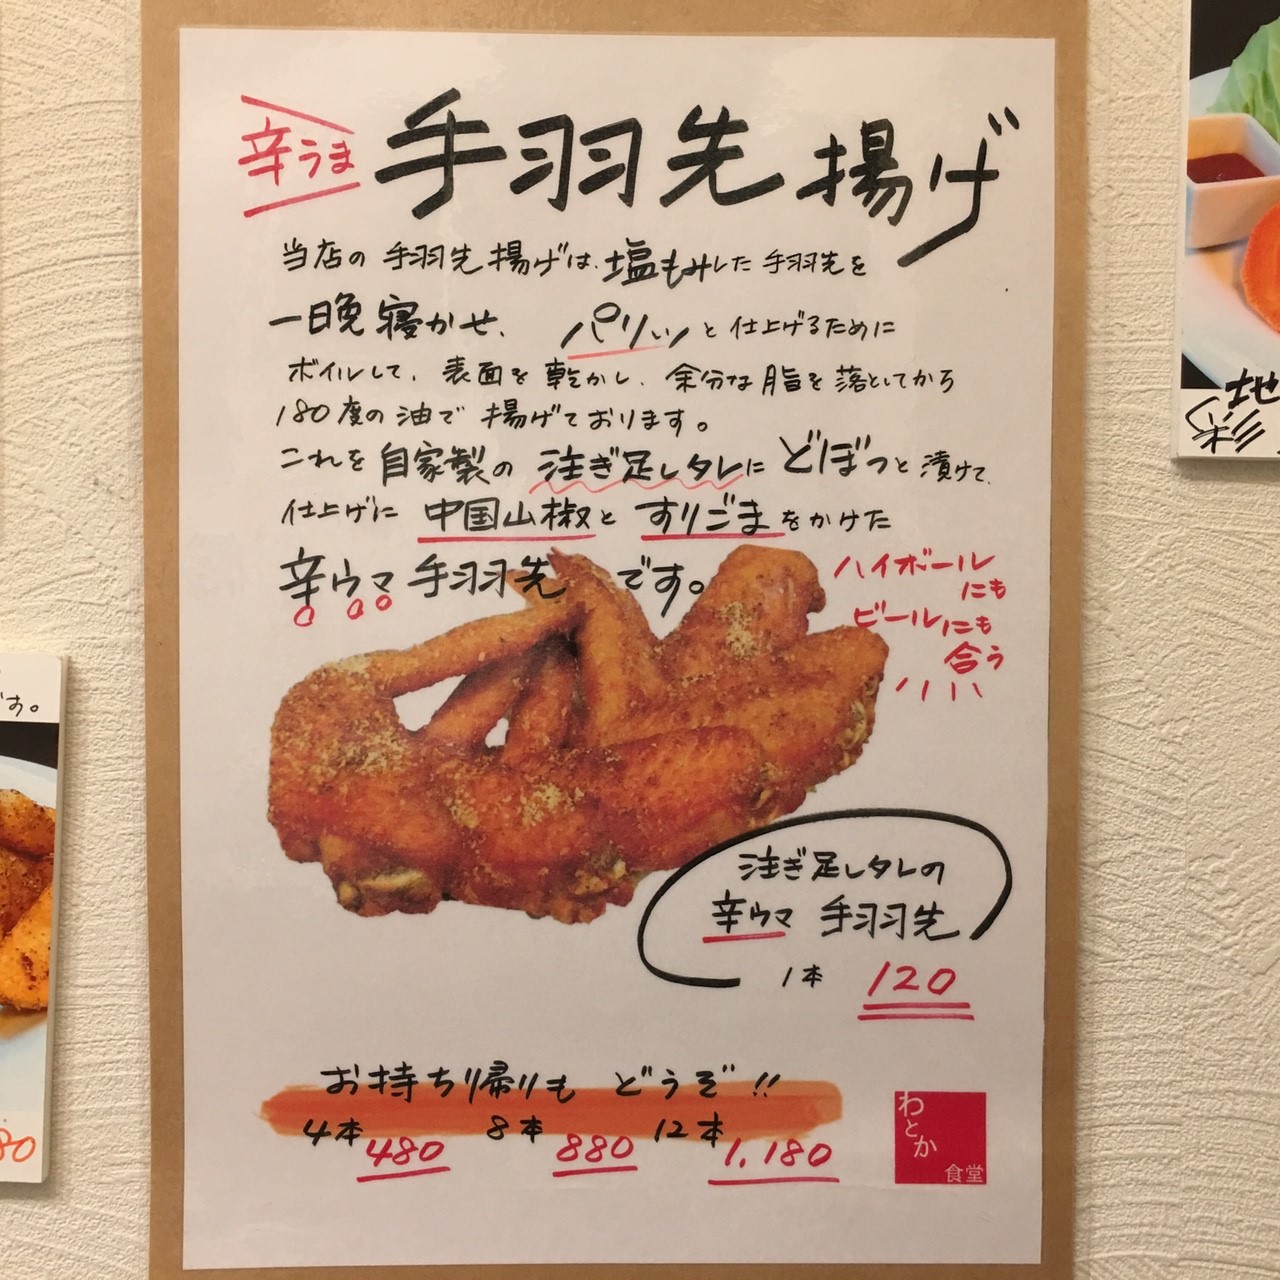 辛うま 手羽先 揚げ
当店の 手羽先 揚げは、塩もみした 手羽先を
一日晩 寝かせ、 パリッ と 仕上げるために
ボイルして、表面を 乾かし、余分な 脂を 落としてから
180度の 油で 揚げております。
これを 自家製の 注ぎ足しタレに どぼっと 漬けて、
仕上げに 中国山椒と すりごまをかけた
辛ウマ 手羽先 です。
ハイボール
にも
ビールにも
合う
注ぎ足しタレの
辛ウマ 手羽先
1本 120
お持ち帰りも どうぞ!!
4本 480 8本 880 12本 1,180
わとか
食堂
です。
80